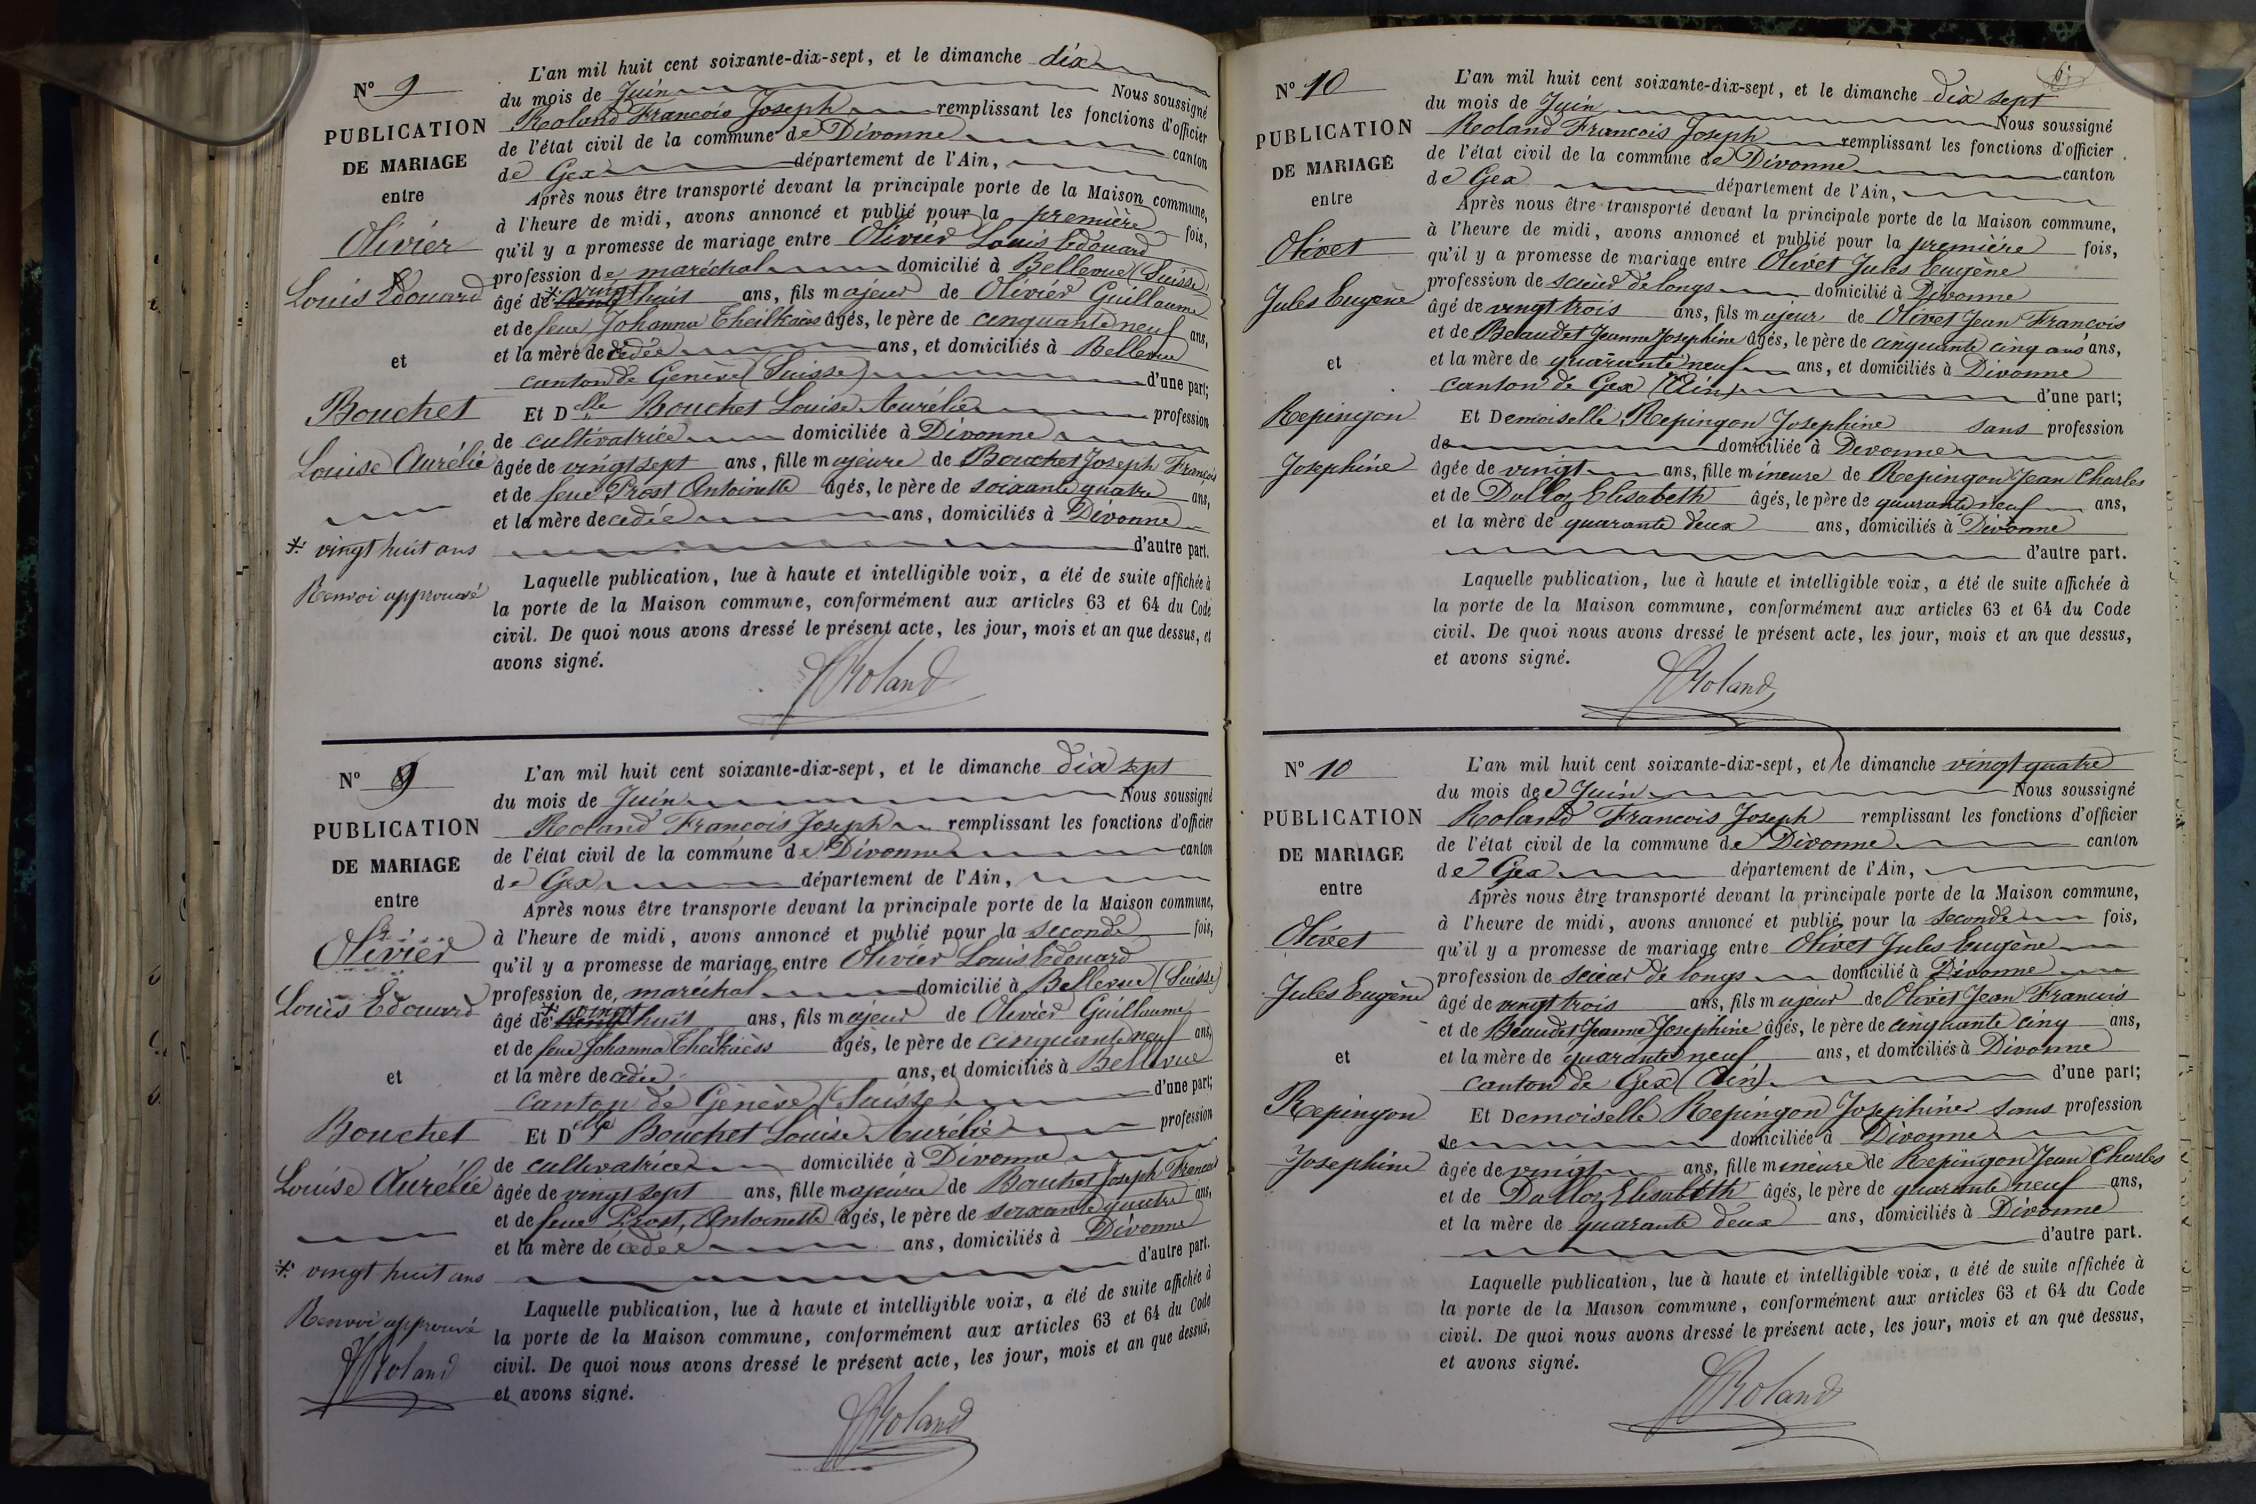 Nº 9
PUBLICATION
DE MARIAGE
entre
Olivier
Louis Edouard
et
Bouchet
Louise Aurélie
vingt huit ans
Renvoi approuvé
L'an mil huit cent soixante-dix-sept, et le dimanche dix
du mois de Juin Nous soussigné
Roland Francois Joseph remplissant les fonctions d'officier
de l'état civil de la commune de Divonne canton
de Gex département de l'Ain,
Après nous être transporté devant la principale porte de la Maison commune,
à l'heure de midi, avons annoncé et publié pour la première fois,
qu'il y a promesse de mariage entre Olivier Louis Edouard
profession de maréchal domicilié à Bellevue (Suisse)
âgé de vingt huit ans, fils majeur de Olivier Guillaume
et de feue Johanna âgés, le père de cinquante neuf ans,
et la mère de cedée ans, et domiciliés à Bellevue
canton de Genève (Suisse) d'une part;
Et Dlle Bouchet Louise Aurélie profession
de cultivatrice domiciliée à Divonne
âgée de vingt sept ans, fille majeure de Bouchet Joseph François
et de feue Prost Antoinette âgés, le père de soixante quatre ans,
et la mère de cedée ans, domiciliés à Divonne
d'autre part.
Laquelle publication, lue à haute et intelligible voix, a été de suite affichée à
la porte de la Maison commune, conformément aux articles 63 et 64 du Code
civil. De quoi nous avons dressé le présent acte, les jour, mois et an que dessus, et
avons signé.
Roland
Nº 9
PUBLICATION
DE MARIAGE
entre
Olivier
Louis Edouard
et
Bouchet
Louise Aurélie
vingt huit ans
Renvoi approuvé
Roland
L'an mil huit cent soixante-dix-sept, et le dimanche dix sept
du mois de Juin Nous soussigné
Roland Francois Joseph remplissant les fonctions d'officier
de l'état civil de la commune de Divonne canton
de Gex département de l'Ain,
Après nous être transporté devant la principale porte de la Maison commune,
à l'heure de midi, avons annoncé et publié pour la seconde fois,
qu'il y a promesse de mariage entre Olivier Louis Edouard
profession de maréchal domicilié à Bellevue (Suisse)
âgé de vingt huit ans, fils majeur de Olivier Guillaume
et de feue Johanna âgés, le père de cinquante neuf ans,
et la mère de cedée ans, et domiciliés à Bellevue
canton de Genève (Suisse) d'une part;
Et Dlle Bouchet Louise Aurélie profession
de cultivatrice domiciliée à Divonne
âgée de vingt sept ans, fille majeure de Bouchet Joseph Francois
et de feue Prost, Antoinette âgés, le père de soixante quatre ans,
et la mère de cedée ans, domiciliés à Divonne
d'autre part.
Laquelle publication, lue à haute et intelligible voix, a été de suite affichée à
la porte de la Maison commune, conformément aux articles 63 et 64 du Code
civil. De quoi nous avons dressé le présent acte, les jour, mois et an que dessus,
et avons signé.
Roland
6
Nº 10
PUBLICATION
DE MARIAGE
entre
Olivet
Jules Eugène
et
Repingon
Josephine
L'an mil huit cent soixante-dix-sept, et le dimanche dix sept
du mois de Juin Nous soussigné
Roland Francois Joseph remplissant les fonctions d'officier
de l'état civil de la commune de Divonne canton
de Gex département de l'Ain,
Après nous être transporté devant la principale porte de la Maison commune,
à l'heure de midi, avons annoncé et publié pour la première fois,
qu'il y a promesse de mariage entre Olivet Jules Eugène
profession de scieur de longs domicilié à Divonne
âgé de vingt trois ans, fils majeur de Olivet Jean Francois
et de Beaudet Jeanne Josephine âgés, le père de cinquante cinq ans ans,
et la mère de quarante neuf ans, et domiciliés à Divonne
canton de Gex (Ain) d'une part;
Et Demoiselle Repingon Josephine sans profession
de domiciliée à Divonne
âgée de vingt ans, fille mineure de Repingon Jean Charles
et de Dalloz Elisabeth âgés, le père de quarante neuf ans,
et la mère de quarante deux ans, domiciliés à Divonne
d'autre part.
Laquelle publication, lue à haute et intelligible voix, a été de suite affichée à
la porte de la Maison commune, conformément aux articles 63 et 64 du Code
civil. De quoi nous avons dressé le présent acte, les jour, mois et an que dessus,
et avons signé.
Roland
Nº 10
PUBLICATION
DE MARIAGE
entre
Olivet
Jules Eugène
et
Repingon
Josephine
L'an mil huit cent soixante-dix-sept, et le dimanche vingt quatre
du mois de Juin Nous soussigné
Roland Francois Joseph remplissant les fonctions d'officier
de l'état civil de la commune de Divonne canton
de Gex département de l'Ain,
Après nous être transporté devant la principale porte de la Maison commune,
à l'heure de midi, avons annoncé et publié pour la seconde fois,
qu'il y a promesse de mariage entre Olivet Jules Eugène
profession de scieur de longs domicilié à Divonne
âgé de vingt trois ans, fils majeur de Olivet Jean Francois
et de Beaudet Jeanne Josephine âgés, le père de cinquante cinq ans,
et la mère de quarante neuf ans, et domiciliés à Divonne
canton de Gex (Ain) d'une part;
Et Demoiselle Repingon Josephine sans profession
de domiciliée à Divonne
âgée de vingt ans, fille mineure de Repingon Jean Charles
et de Dalloz Elisabeth âgés, le père de quarante neuf ans,
et la mère de quarante deux ans, domiciliés à Divonne
d'autre part.
Laquelle publication, lue à haute et intelligible voix, a été de suite affichée à
la porte de la Maison commune, conformément aux articles 63 et 64 du Code
civil. De quoi nous avons dressé le présent acte, les jour, mois et an que dessus,
et avons signé.
Roland